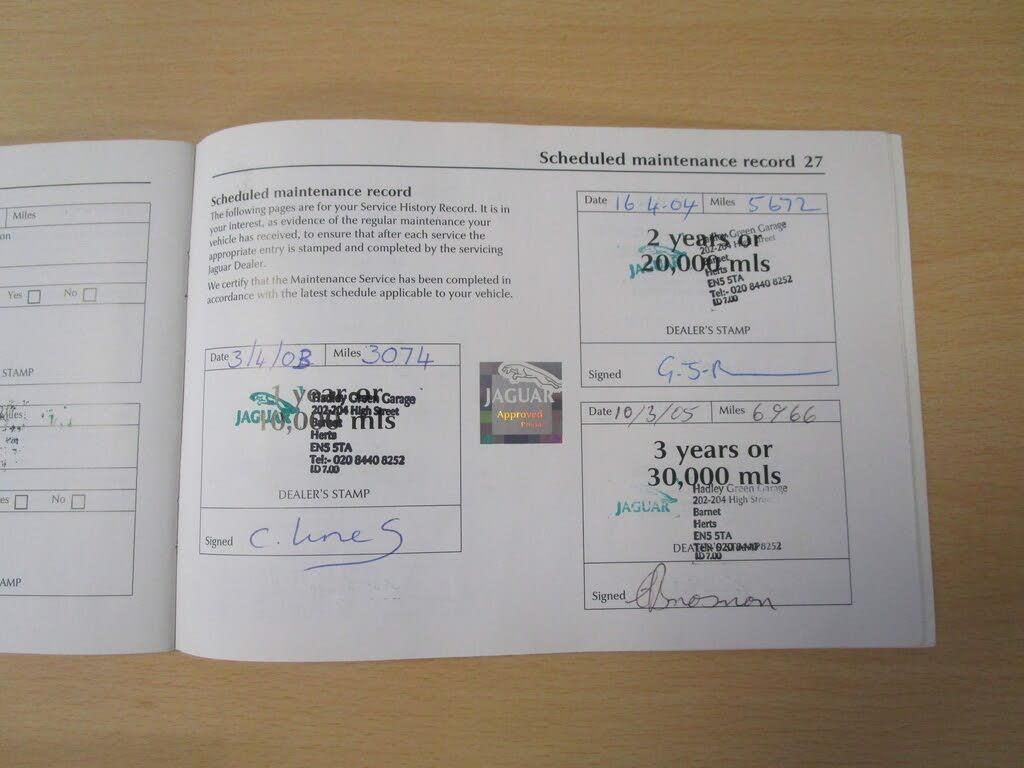 Miles
Yes No
STAMP
Miles:
es No
AMP
Scheduled maintenance record 27
Scheduled maintenance record
The following pages are for your Service History Record. It is in
your interest, as evidence of the regular maintenance your
vehicle has received, to ensure that after each service the
appropriate entry is stamped and completed by the servicing
Jaguar Dealer.
We certify that the Maintenance Service has been completed in
accordance with the latest schedule applicable to your vehicle.
Date 3/4/03 Miles 3074
1 year or
10,000 mls
JAGUAR
Hadley Green Garage
202-204 High Street
Barnet
Herts
EN5 5TA
Tel:- 020 8440 8252
LD 7.00
DEALER'S STAMP
Signed C. Lines
JAGUAR
Approved
Date 16-4-04 Miles 5672
2 years or
20,000 mls
JAGUAR
Hadley Green Garage
202-204 High Street
Barnet
Herts
EN5 5TA
Tel:- 020 8440 8252
LD 7.00
DEALER'S STAMP
Signed G.J.R
Date 10/3/05 Miles 6966
3 years or
30,000 mls
JAGUAR
Hadley Green Garage
202-204 High Street
Barnet
Herts
EN5 5TA
Tel:- 020 8440 8252
LD 7.00
DEALER'S STAMP
Signed